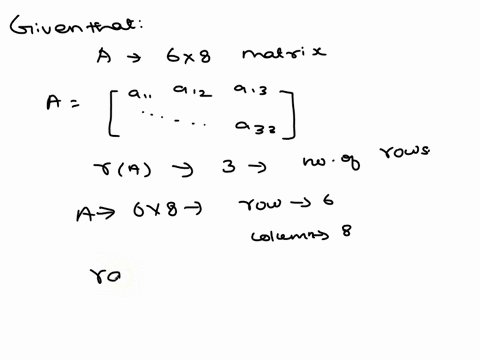 Given that:
A → 6×8 matrix
A = [ a11 a12 a13
...... a33 ]
r(A) → 3 → no. of rows
A → 6×8 → row → 6
column → 8
ra